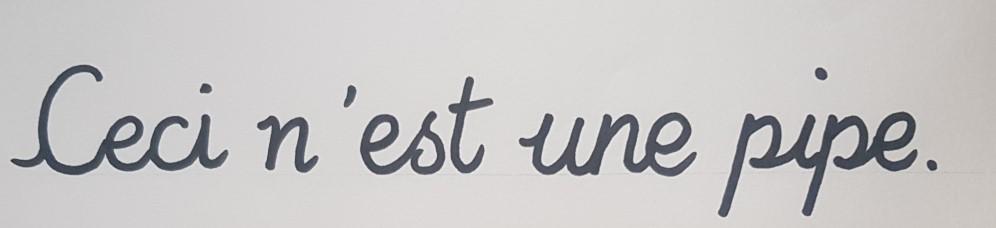 Ceci n'est une pipe.